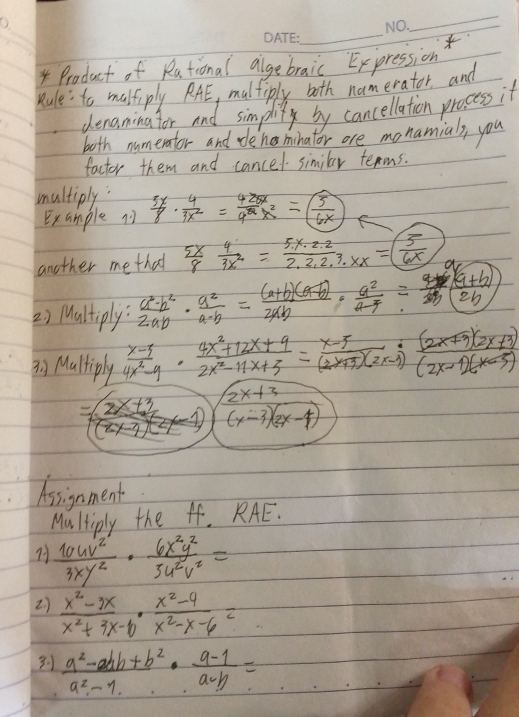 DATE: NO.
* Product of Rational algebraic Expression *
Rule: to multiply RAE, multiply both namerator, and
denaminator and simplify by cancellation process if
both numerator and denominator are monamials, you
factor them and cancel similar terms.
multiply:
Example 1.) 5x/8 · 4/3x² = = 5/6x
another method 5x/8 4/3x² = 5.x.2.2/2.2.2.3.xx = 5/6x
2.) Multiply: a²-b²/2ab · a²/a-b = (a+b)(a-b)/2ab · a²/a-b = a(a+b)/2b
3.) Multiply x-5/4x²-9 · 4x²+12x+9/2x²-11x+5 = x-5/(2x+3)(2x-3) · (2x+3)(2x+3)/(2x-1)(x-5)
= 2x+3/(2x-3)(2x-1) 2x+3
Assignment
Multiply the ff. RAE.
1.) 10uv²/3xy² · 6x²y²/5u²v² =
2.) x²-3x/x²+3x-10 · x²-4/x²-x-6 =
3.) a²-2ab+b²/a²-1 · a-1/a-b =